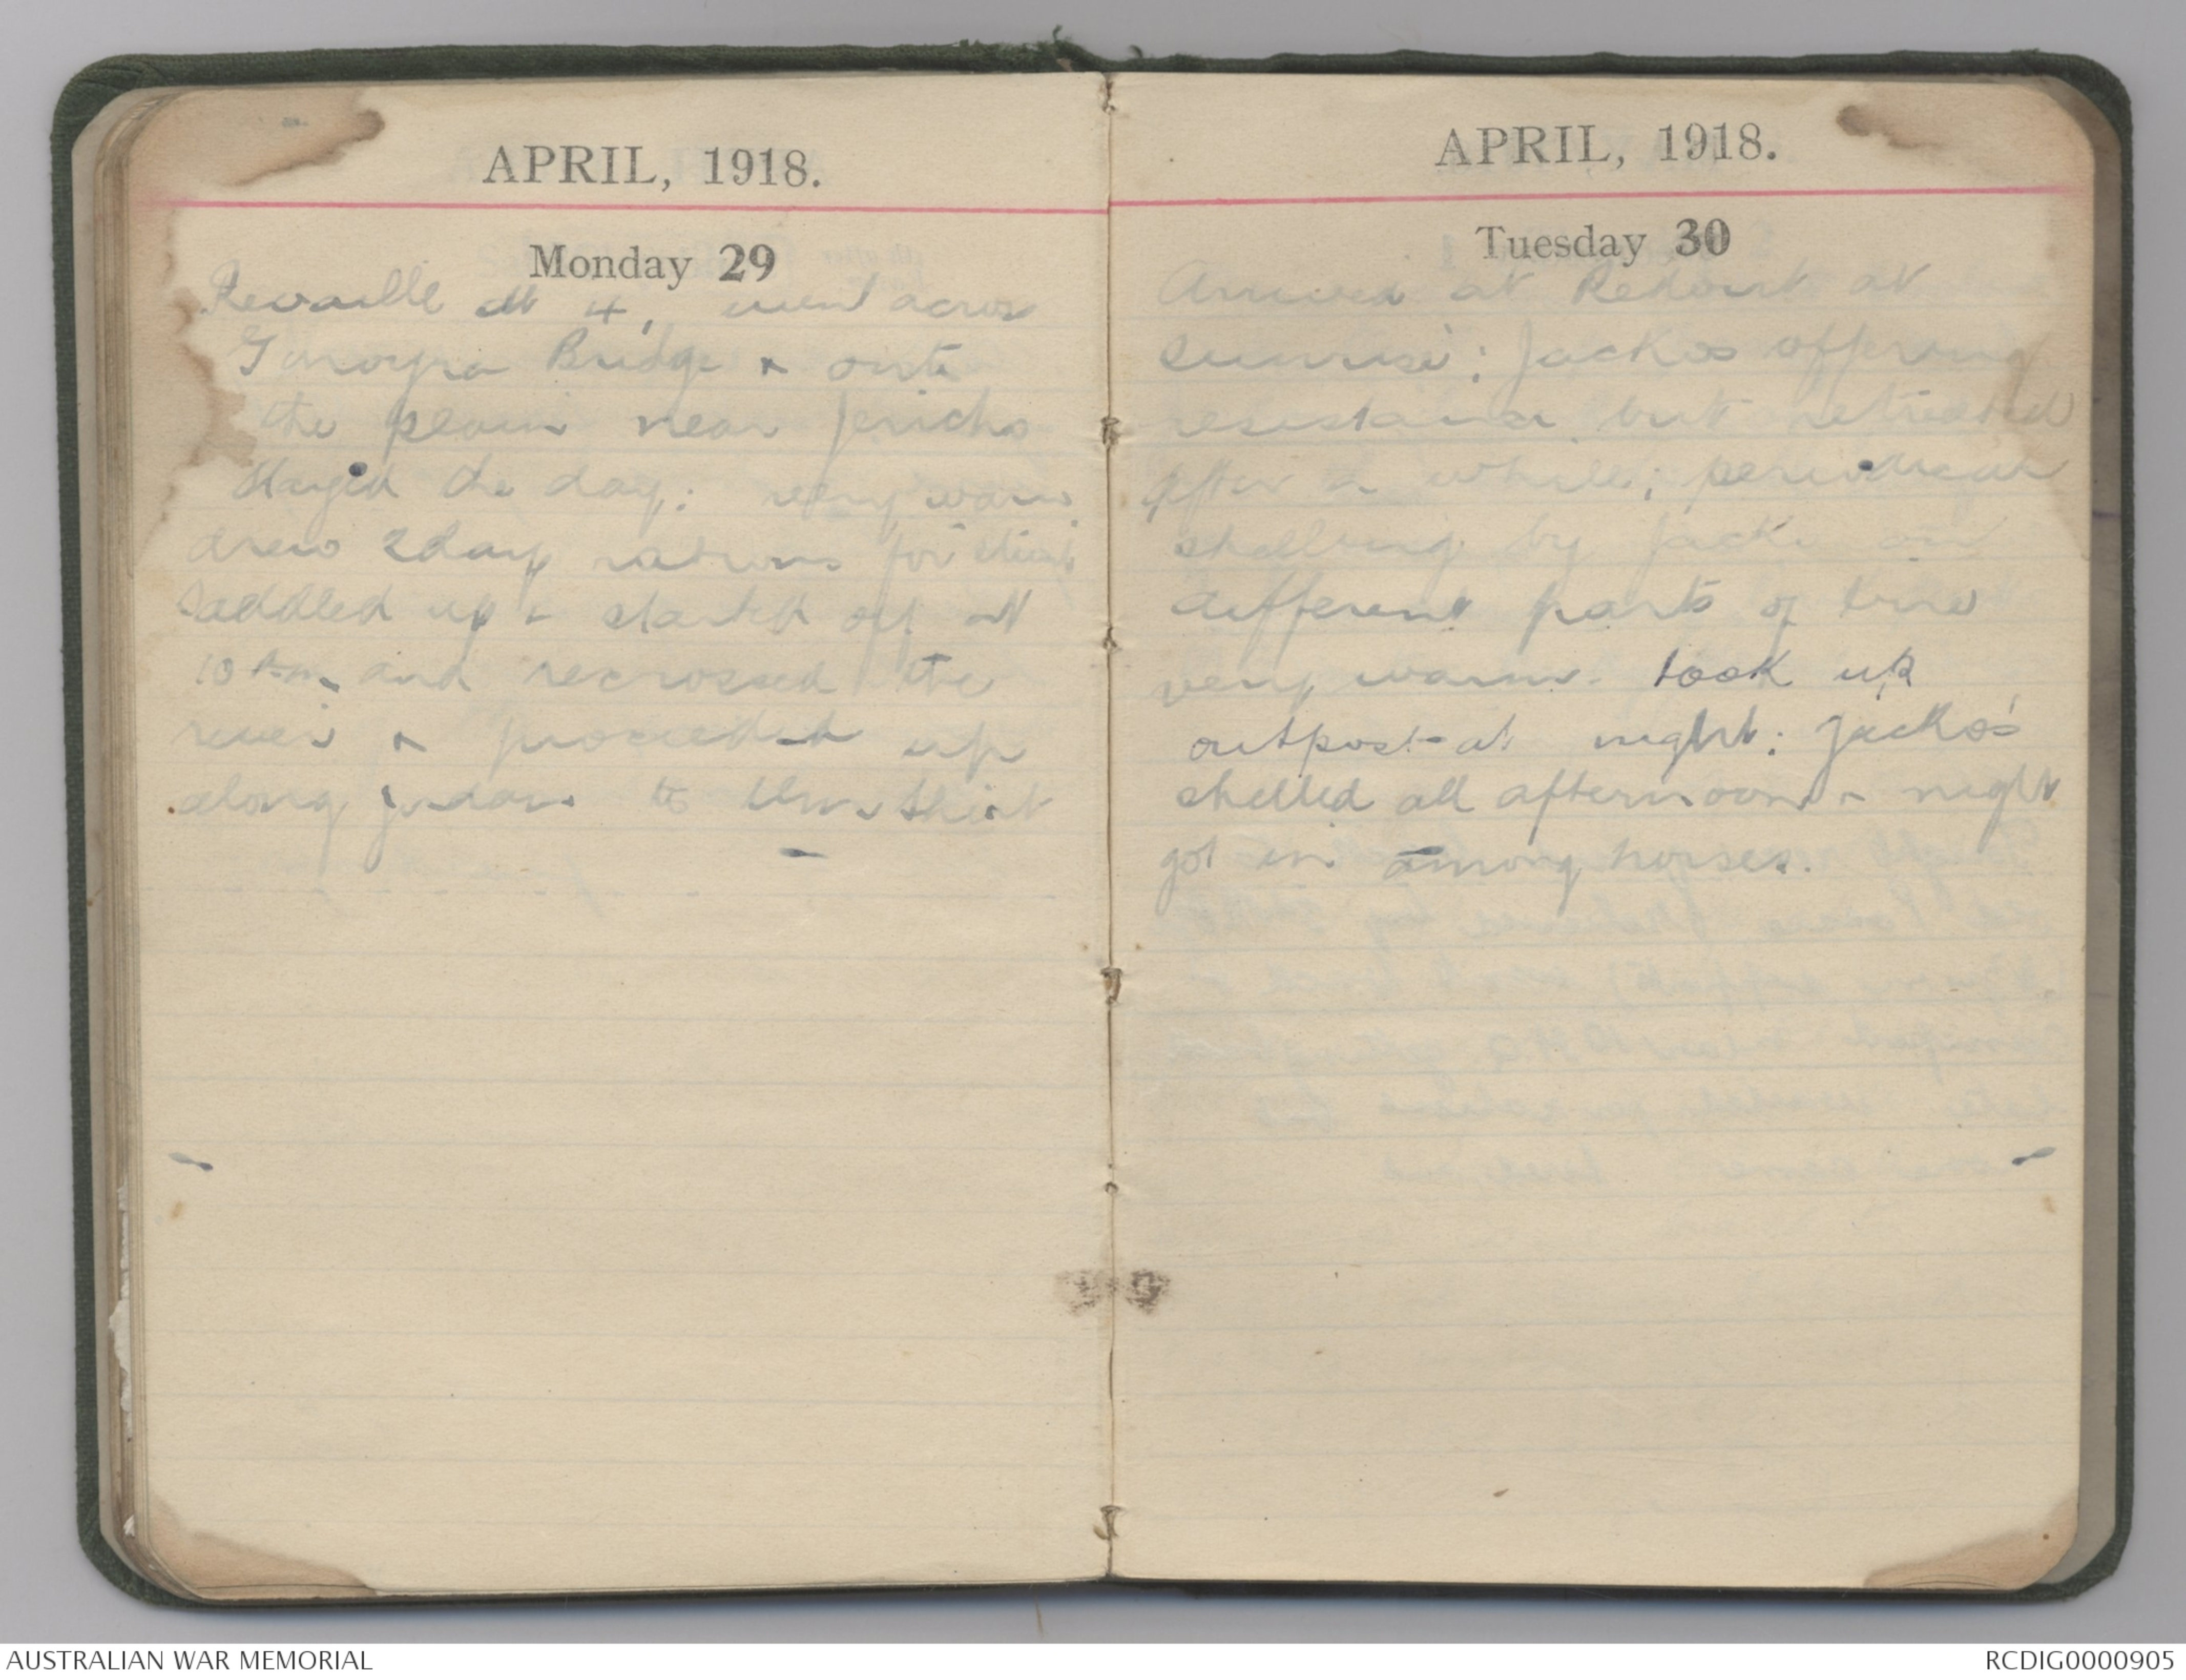 APRIL, 1918.
Monday 29
Revaille at 4, went across
Bridge & onto
the plain near Jericho
Stayed the day: very warm
drew 2 days rations for
saddled up & started off at
10 and recrossed the
river & proceeded up
along Jordan to
APRIL, 1918.
Tuesday 30
Arrived at Redoubt at
sunrise; Jackos offering
resistance but retreated
after a while; periodical
shelling by Jacko on
different parts of line
very warm. took up
outpost at night: Jacko's
shelled all afternoon & night
got in among horses.
AUSTRALIAN WAR MEMORIAL
RCDIG0000905